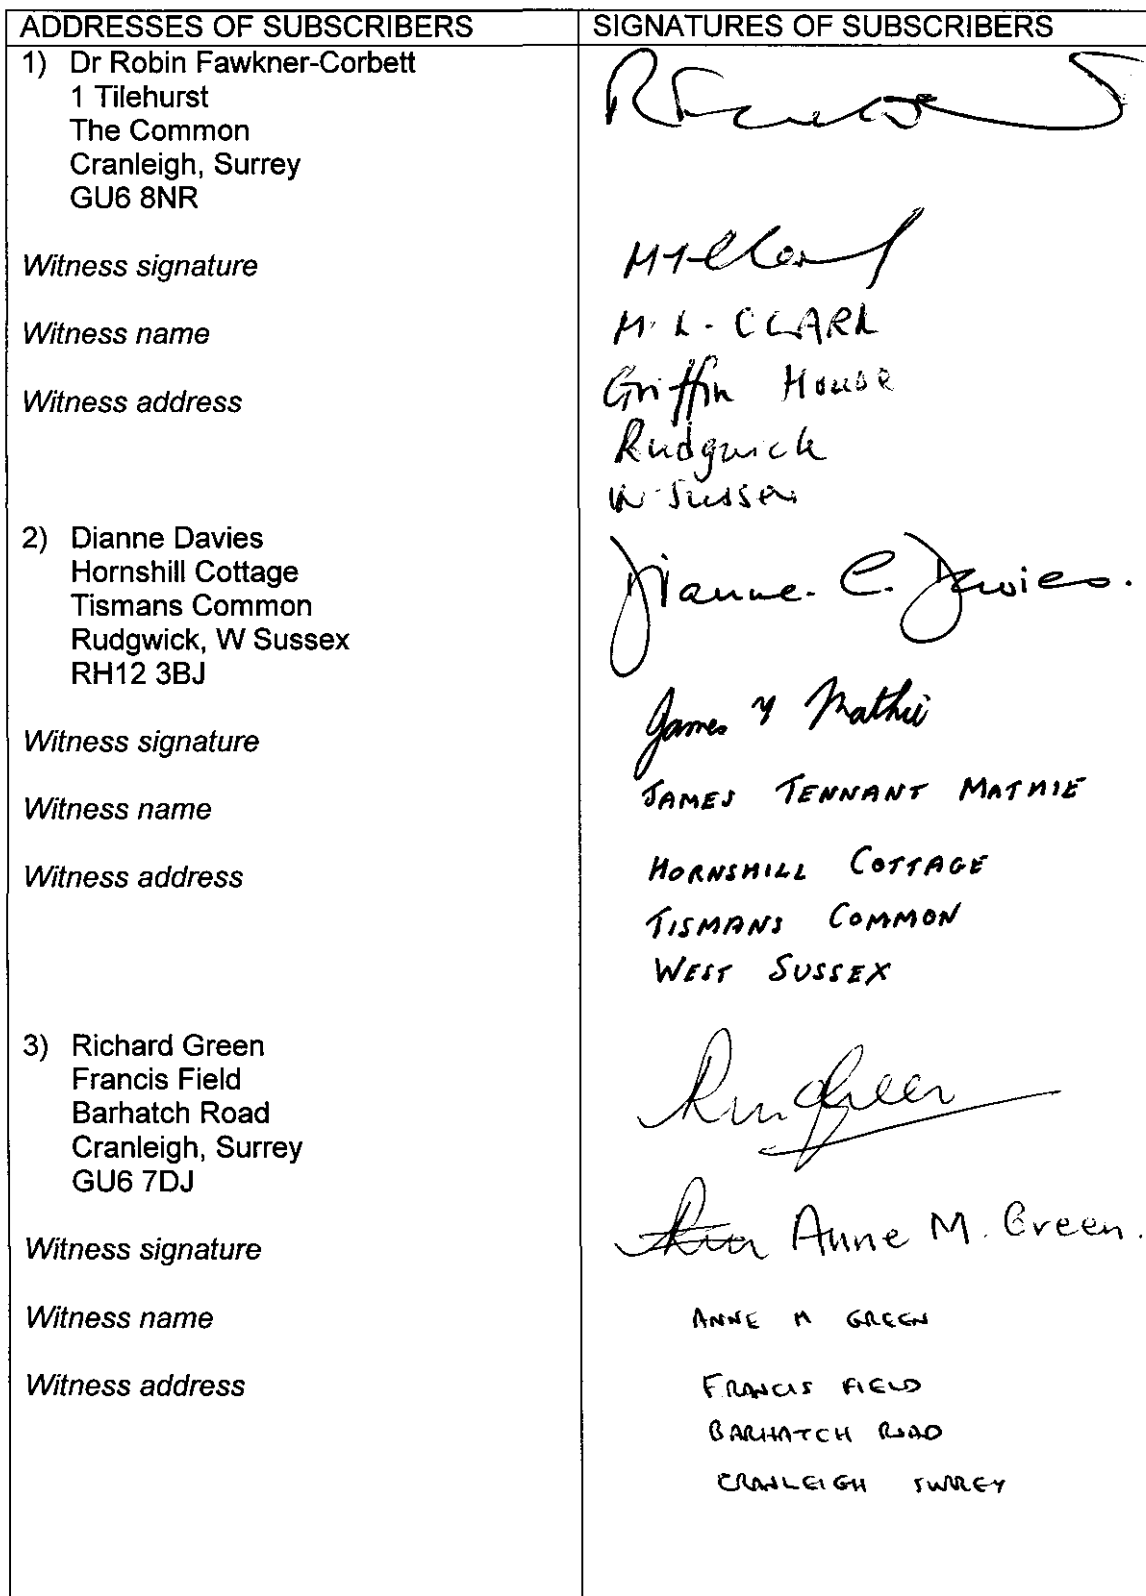 ADDRESSES OF SUBSCRIBERS SIGNATURES OF SUBSCRIBERS
1) Dr Robin Fawkner-Corbett
1 Tilehurst
The Common
Cranleigh, Surrey
GU6 8NR
Witness signature
Witness name M. L. CLARK
Witness address Griffin House
Rudgwick
W. Sussex
2) Dianne Davies Dianne C. Davies.
Hornshill Cottage
Tismans Common
Rudgwick, W Sussex
RH12 3BJ
Witness signature James Mathie
Witness name JAMES TENNANT MATHIE
Witness address HORNSHILL COTTAGE
TISMANS COMMON
WEST SUSSEX
3) Richard Green Green
Francis Field
Barhatch Road
Cranleigh, Surrey
GU6 7DJ
Witness signature Anne M. Green.
Witness name ANNE M GREEN
Witness address FRANCIS FIELD
BARHATCH ROAD
CRANLEIGH SURREY